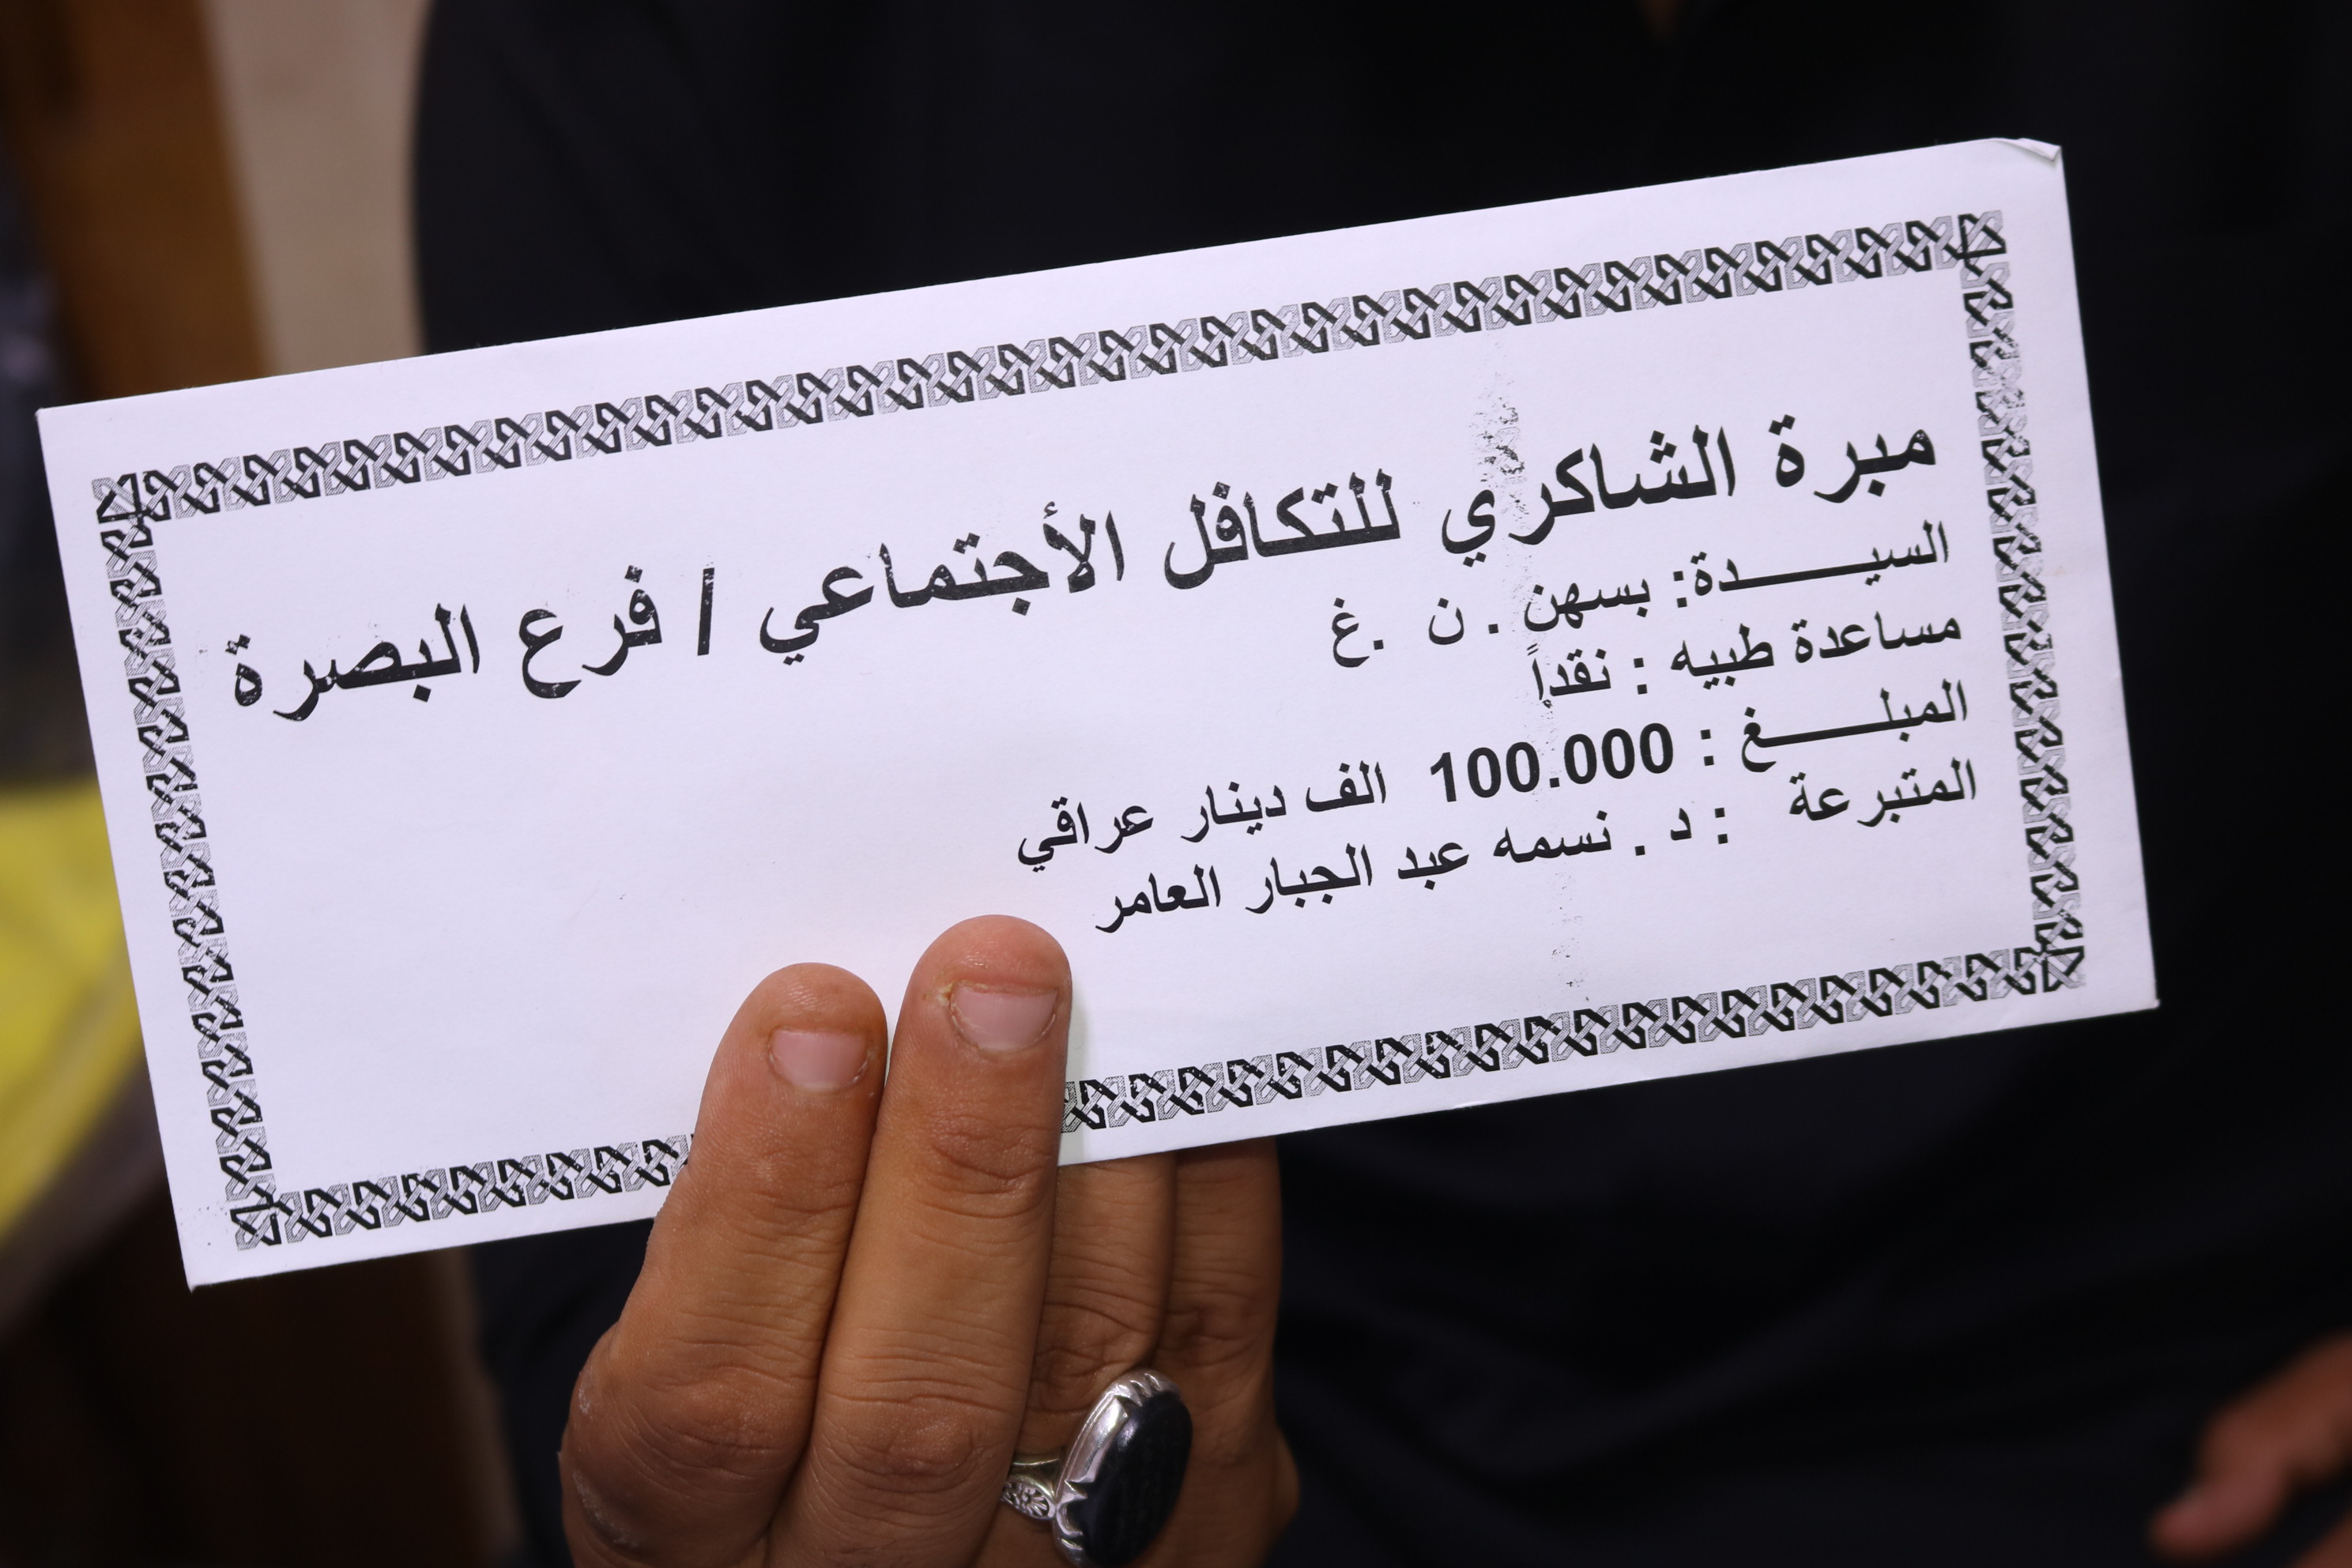 مبرة الشاكري للتكافل الأجتماعي / فرع البصرة
السيـــــــدة: بسهن . ن .غ
مساعدة طبيه : نقداً
المبلـــــــغ : 100.000 الف دينار عراقي
المتبرعة : د . نسمه عبد الجبار العامر